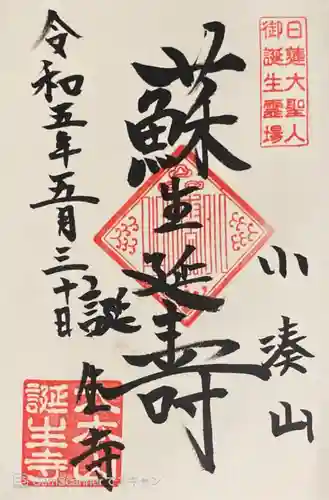 日蓮大聖人
御誕生霊場
小湊山
蘇生延壽
誕生寺
令和五年五月三十日
誕生寺
CamScanner でスキャン